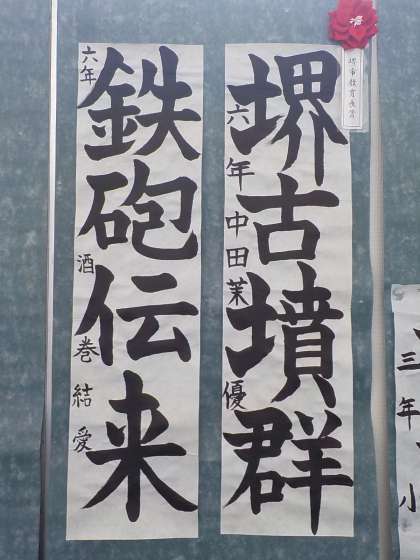 堺市教育長賞
堺古墳群
六年 中田茉優
鉄砲伝来
六年 酒巻結愛
三年 小